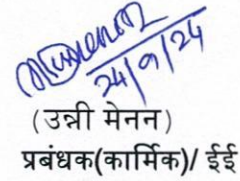 24/9/24
(उन्नी मेनन)
प्रबंधक(कार्मिक)/ ईई